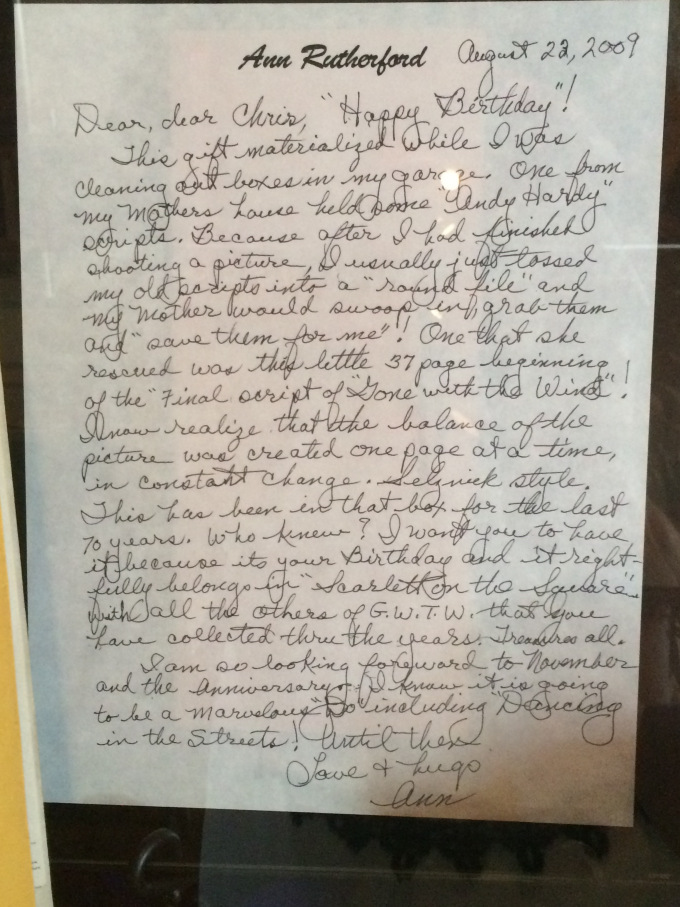 Ann Rutherford August 22, 2009
Dear, dear Chris, "Happy Birthday"!
This gift materialized while I was
cleaning out boxes in my garage. One from
my Mothers house held some "Andy Hardy"
scripts. Because after I had finished
shooting a picture, I usually just tossed
my old scripts into a "round file" and
my Mother would swoop in, grab them
and "save them for me"! One that she
rescued was this little 37 page beginning
of the "Final script of "Gone with the Wind"!
I now realize that the balance of the
picture was created one page at a time,
in constant change. Selznick style.
This has been in that box for the last
70 years. Who knew? I want you to have
it because its your Birthday and it right-
fully belongs in "Scarlett on the Square"
with all the others of G.W.T.W. that you
have collected thru the years. Treasures all.
I am so looking foreward to November
and the Anniversary - I know it is going
to be a marvelous "Do" including "Dancing
in the Streets! Until then
Love + hugs
Ann